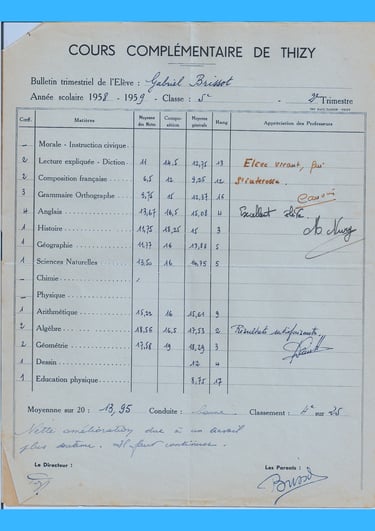 COURS COMPLÉMENTAIRE DE THIZY
Bulletin trimestriel de l'Elève : Gabriel Brissot
Année scolaire 1958 - 1959 - Classe : 5e 3e Trimestre
Coef. Matières Moyenne des Notes Composition Moyenne générale Rang Appréciation des Professeurs
— Morale - Instruction civique
2 Lecture expliquée - Diction 11 14,5 12,75 13 Elève vivant, qui
2 Composition française 6,5 12 9,25 12 s'intéresse.
3 Grammaire Orthographe 9,75 15 12,37 16
2 Anglais 13,67 16,5 15,08 4 Excellent élève
1 Histoire 11,75 18,25 15 3
1 Géographie 11,77 16 13,88 5
1 Sciences Naturelles 13,50 16 14,75 5
— Chimie
— Physique
1 Arithmétique 15,22 16 15,61 9
2 Algèbre 18,56 16,5 17,53 2 Résultats satisfaisants.
2 Géométrie 17,58 19 18,29 3
1 Dessin 12 4
1 Education physique 8,75 17
Moyenne sur 20 : 13,95 Conduite : Classement : 4e sur 25
Nette amélioration due à un travail
plus soutenu. Il faut continuer.
Le Directeur : Les Parents :
Brissot